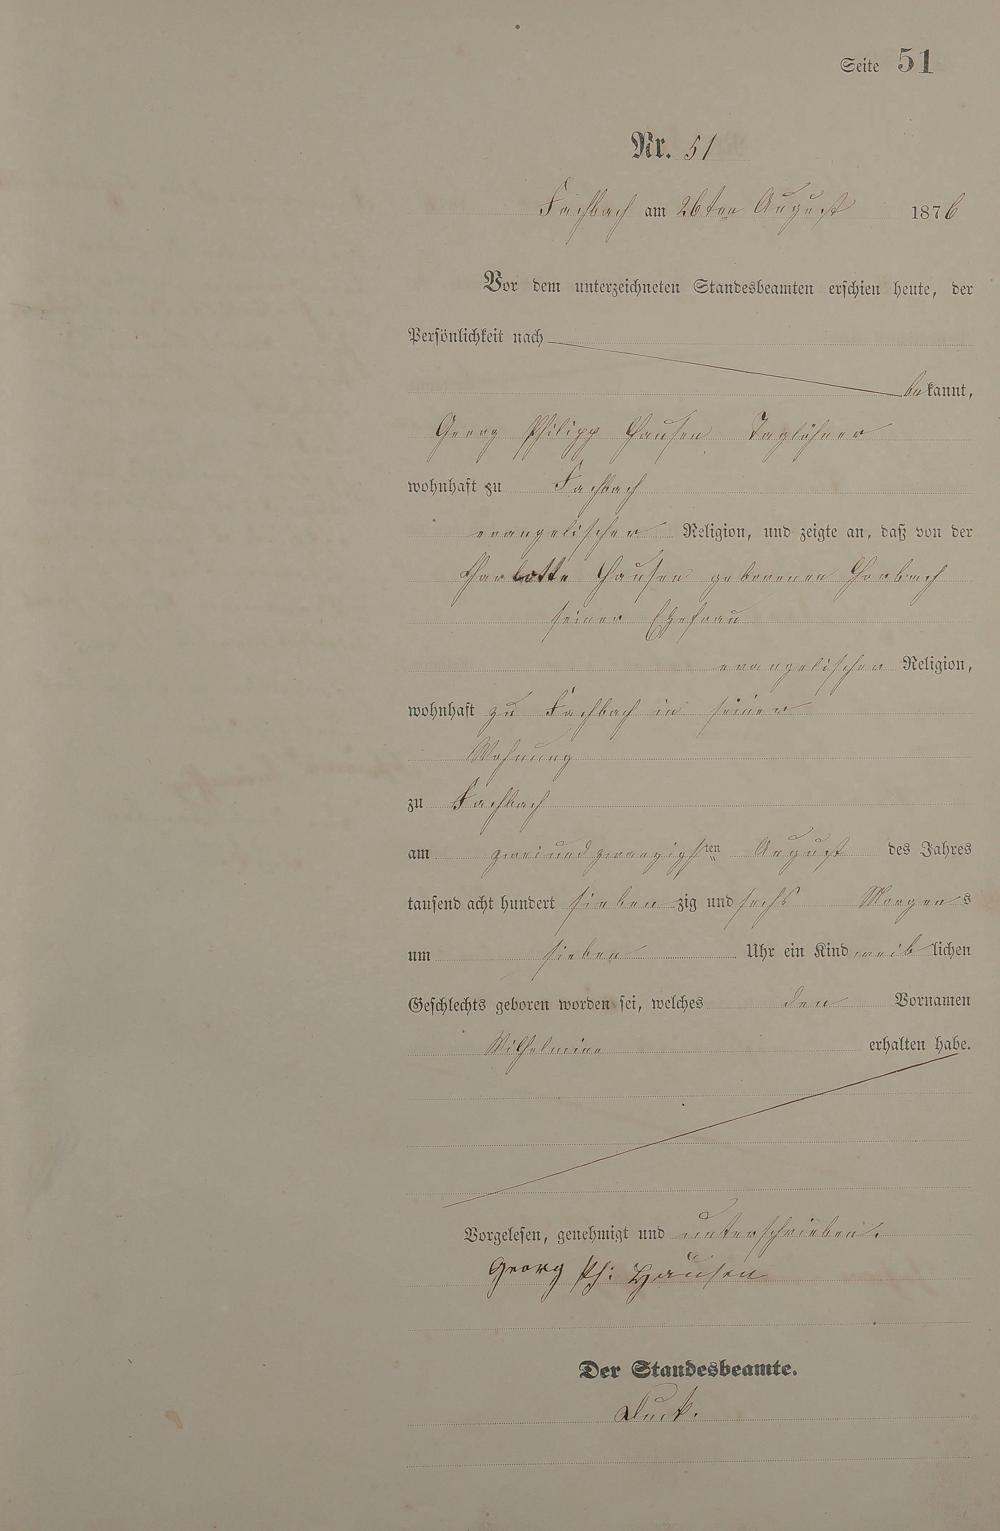 Seite 51
Nr. 51
Fachbach am 26ten August 1876
Vor dem unterzeichneten Standesbeamten erschien heute, der
Persönlichkeit nach
bekannt,
Georg Philipp Hausen Taglöhner
wohnhaft zu Fachbach
evangelischer Religion, und zeigte an, daß von der
Charlotte Hausen geborenen Horbach
seiner Ehefrau
evangelischer Religion,
wohnhaft zu Fachbach in seiner
Wohnung
zu Fachbach
am zweiundzwanzigsten August des Jahres
tausend acht hundert siebenzig und sechs Morgens
um sieben Uhr ein Kind weiblichen
Geschlechts geboren worden sei, welches den Vornamen
Wilhelmine erhalten habe.
Vorgelesen, genehmigt und unterschrieben.
Georg Ph: Hausen
Der Standesbeamte.